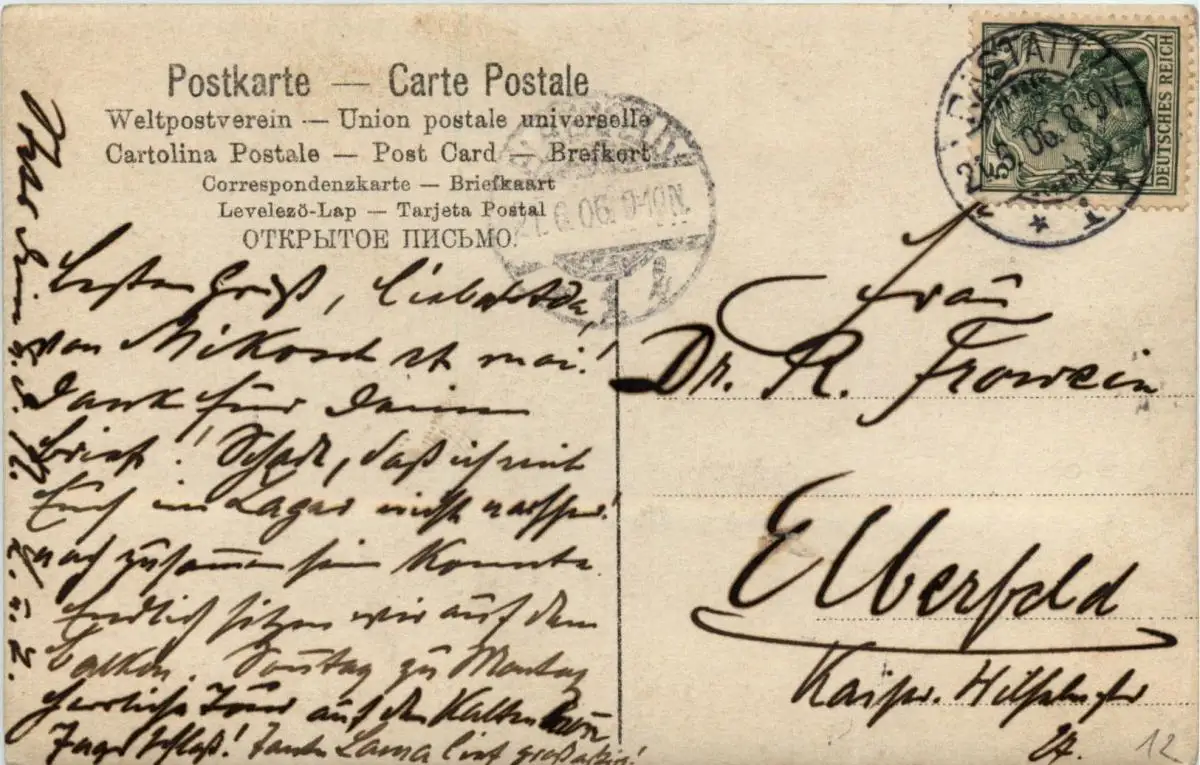 Postkarte — Carte Postale
Weltpostverein — Union postale universelle
Cartolina Postale — Post Card — Brefkort
Correspondenzkarte — Briefkaart
Levelező-Lap — Tarjeta Postal
ОТКРЫТОЕ ПИСЬМО.
DEUTSCHES REICH
21.6.06.8-9V.
21.6.06.9-10N.
Besten Gruß,
von Mikosch
Dank für Deinen
Brief! Schade, daß ich mit
Euch im Lager nicht
zusammen sein konnte.
Endlich sitzen wir auf dem
Balkon. Sonntag zu Montag
herrliche Tour auf den Kalten
Jagdschloß! Tante lief großartig!
Frau
Dr. R. Frowein
Elberfeld
Kaiser-Wilhelmstr
27.
12